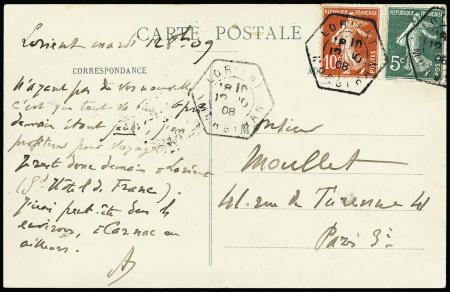 CARTE POSTALE
Lorient mardi 12 8bre 09
CORRESPONDANCE
N'ayant pas de vos nouvelles
c'est que tout va bien. Après
demain étant jeudi, j'en
profiterai pour voyager
Je reste donc demain à Lorient
(Gd Hôtel de France)
J'irai peut-être dans les
environs, à Carnac ou
ailleurs.
Monsieur
Moullet
41. rue de Turenne 41
Paris 3e
REPUBLIQUE FRANÇAISE
10c
POSTES
REPUBLIQUE FRANÇAISE
5c
LORIENT
MORBIHAN
LORIENT
12 10
08
MORBIHAN